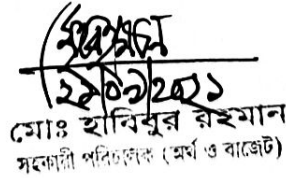 ২৯/০৯/২০২১
মোঃ হাবিবুর রহমান
সহকারী পরিচালক (অর্থ ও বাজেট)